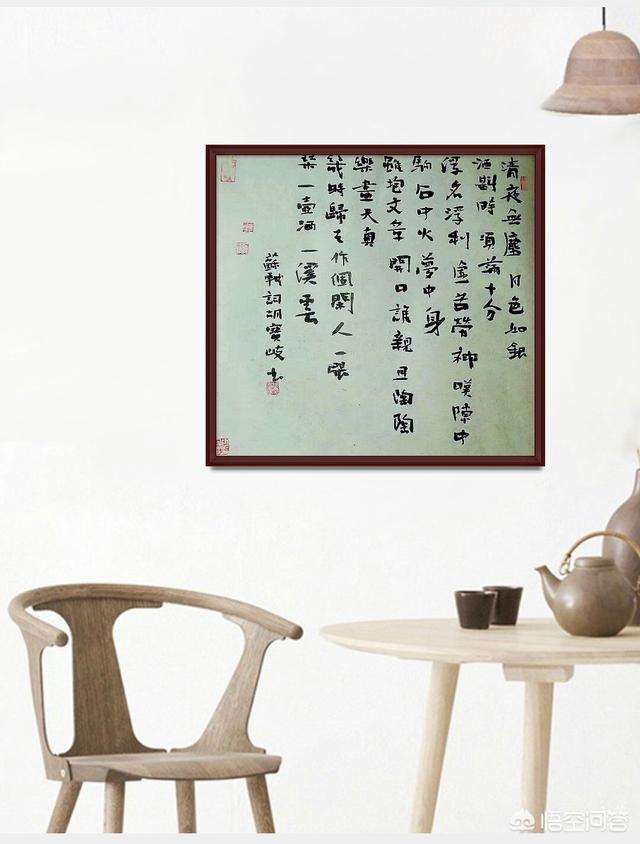 清夜無塵 月色如銀
酒斟時 須滿十分
浮名浮利 虛苦勞神 嘆隙中
駒 石中火 夢中身
雖抱文章 開口誰親 且陶陶
樂盡天真
幾時歸去 作個閑人 一張
琴 一壺酒 一溪雲
蘇軾詞 胡寶岐 书
悟空问答